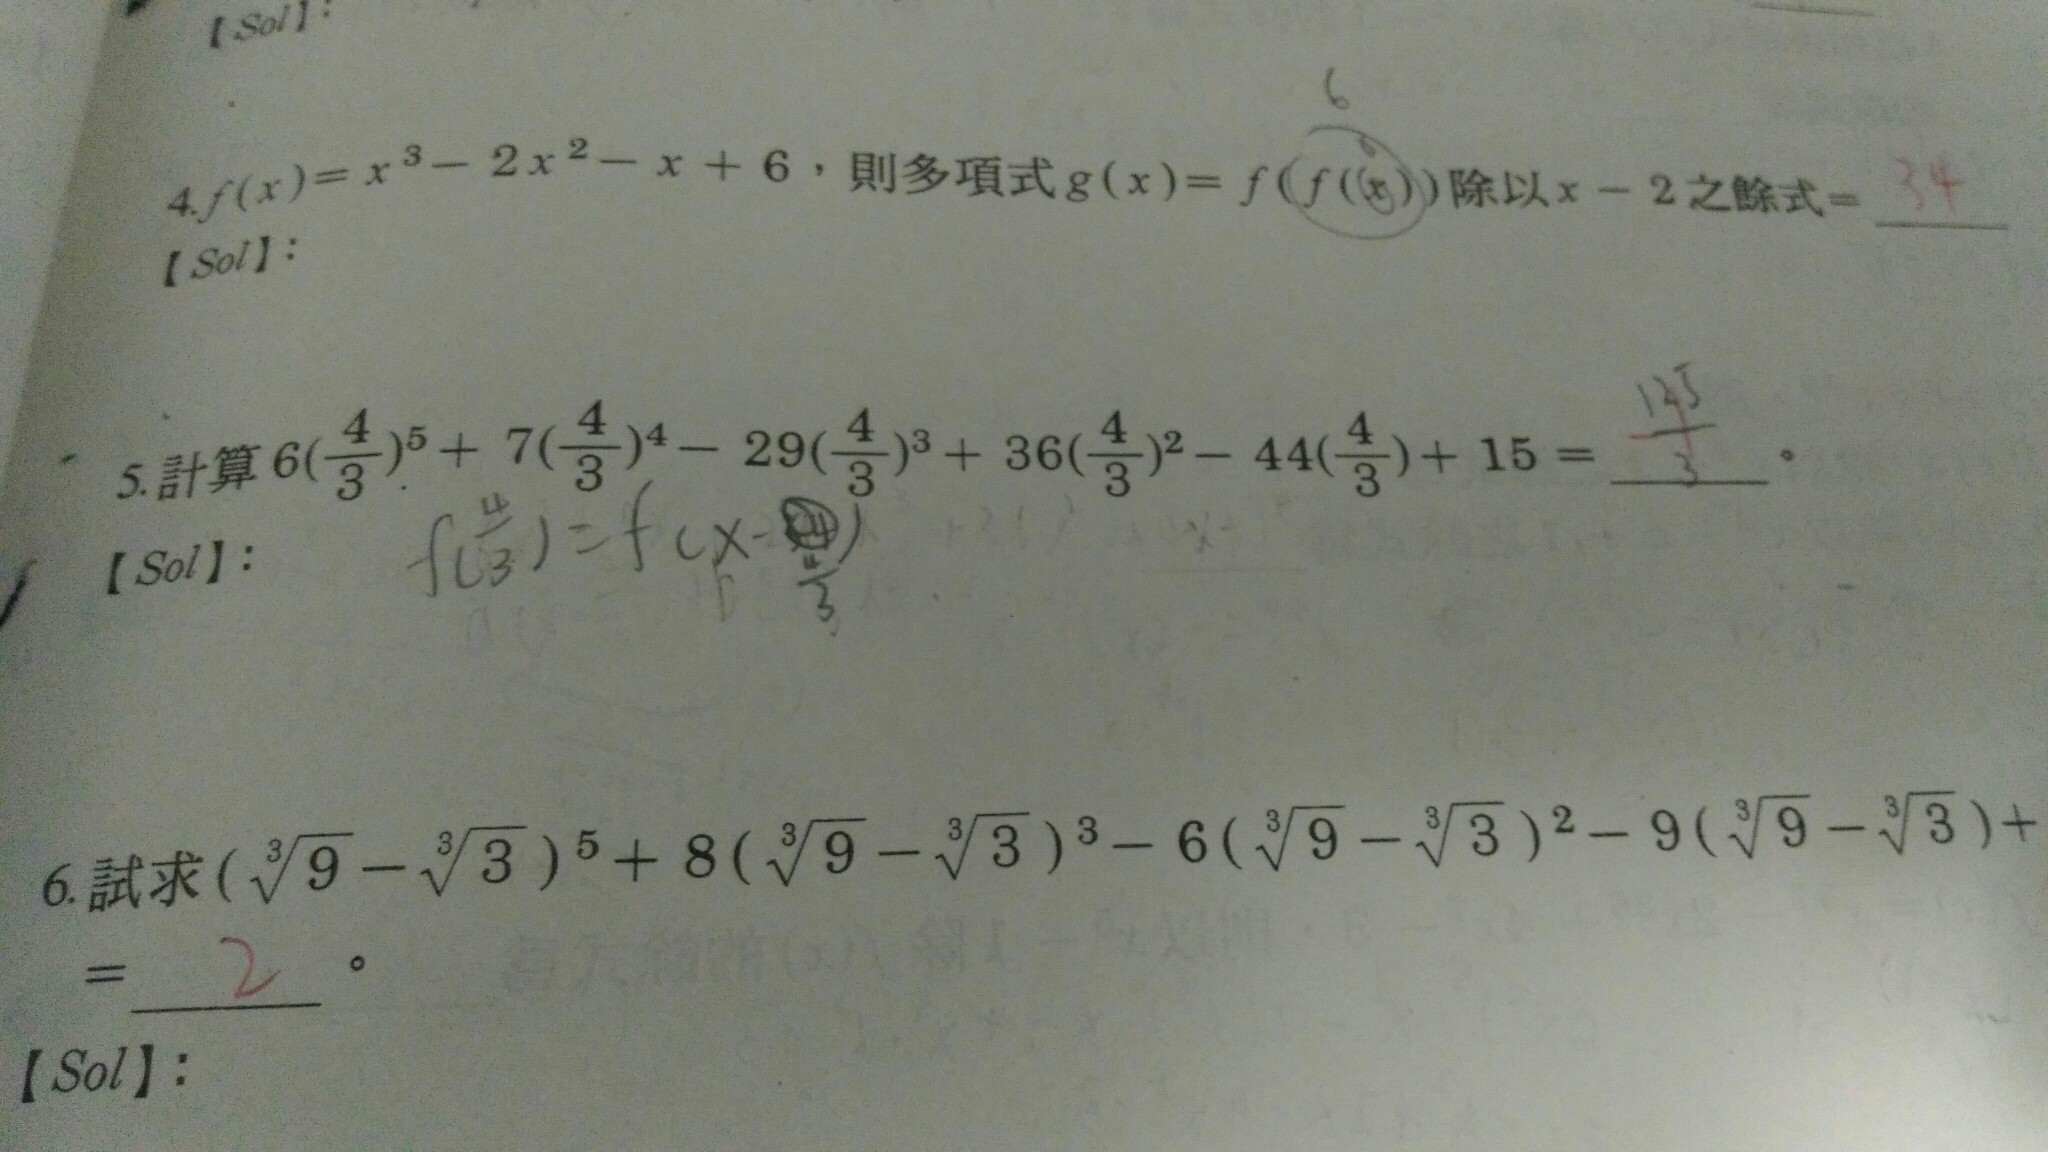 【Sol】:
6
4. f(x) = x³ - 2x² - x + 6，則多項式g(x) = f(f(x))除以x - 2之餘式 = 34
【Sol】:
5. 計算6(4/3)⁵ + 7(4/3)⁴ - 29(4/3)³ + 36(4/3)² - 44(4/3) + 15 = 125/3 。
f(4/3) = f(x-4/3)
【Sol】:
6. 試求(∛9 - ∛3)⁵ + 8(∛9 - ∛3)³ - 6(∛9 - ∛3)² - 9(∛9 - ∛3) +
= 2 。
【Sol】: